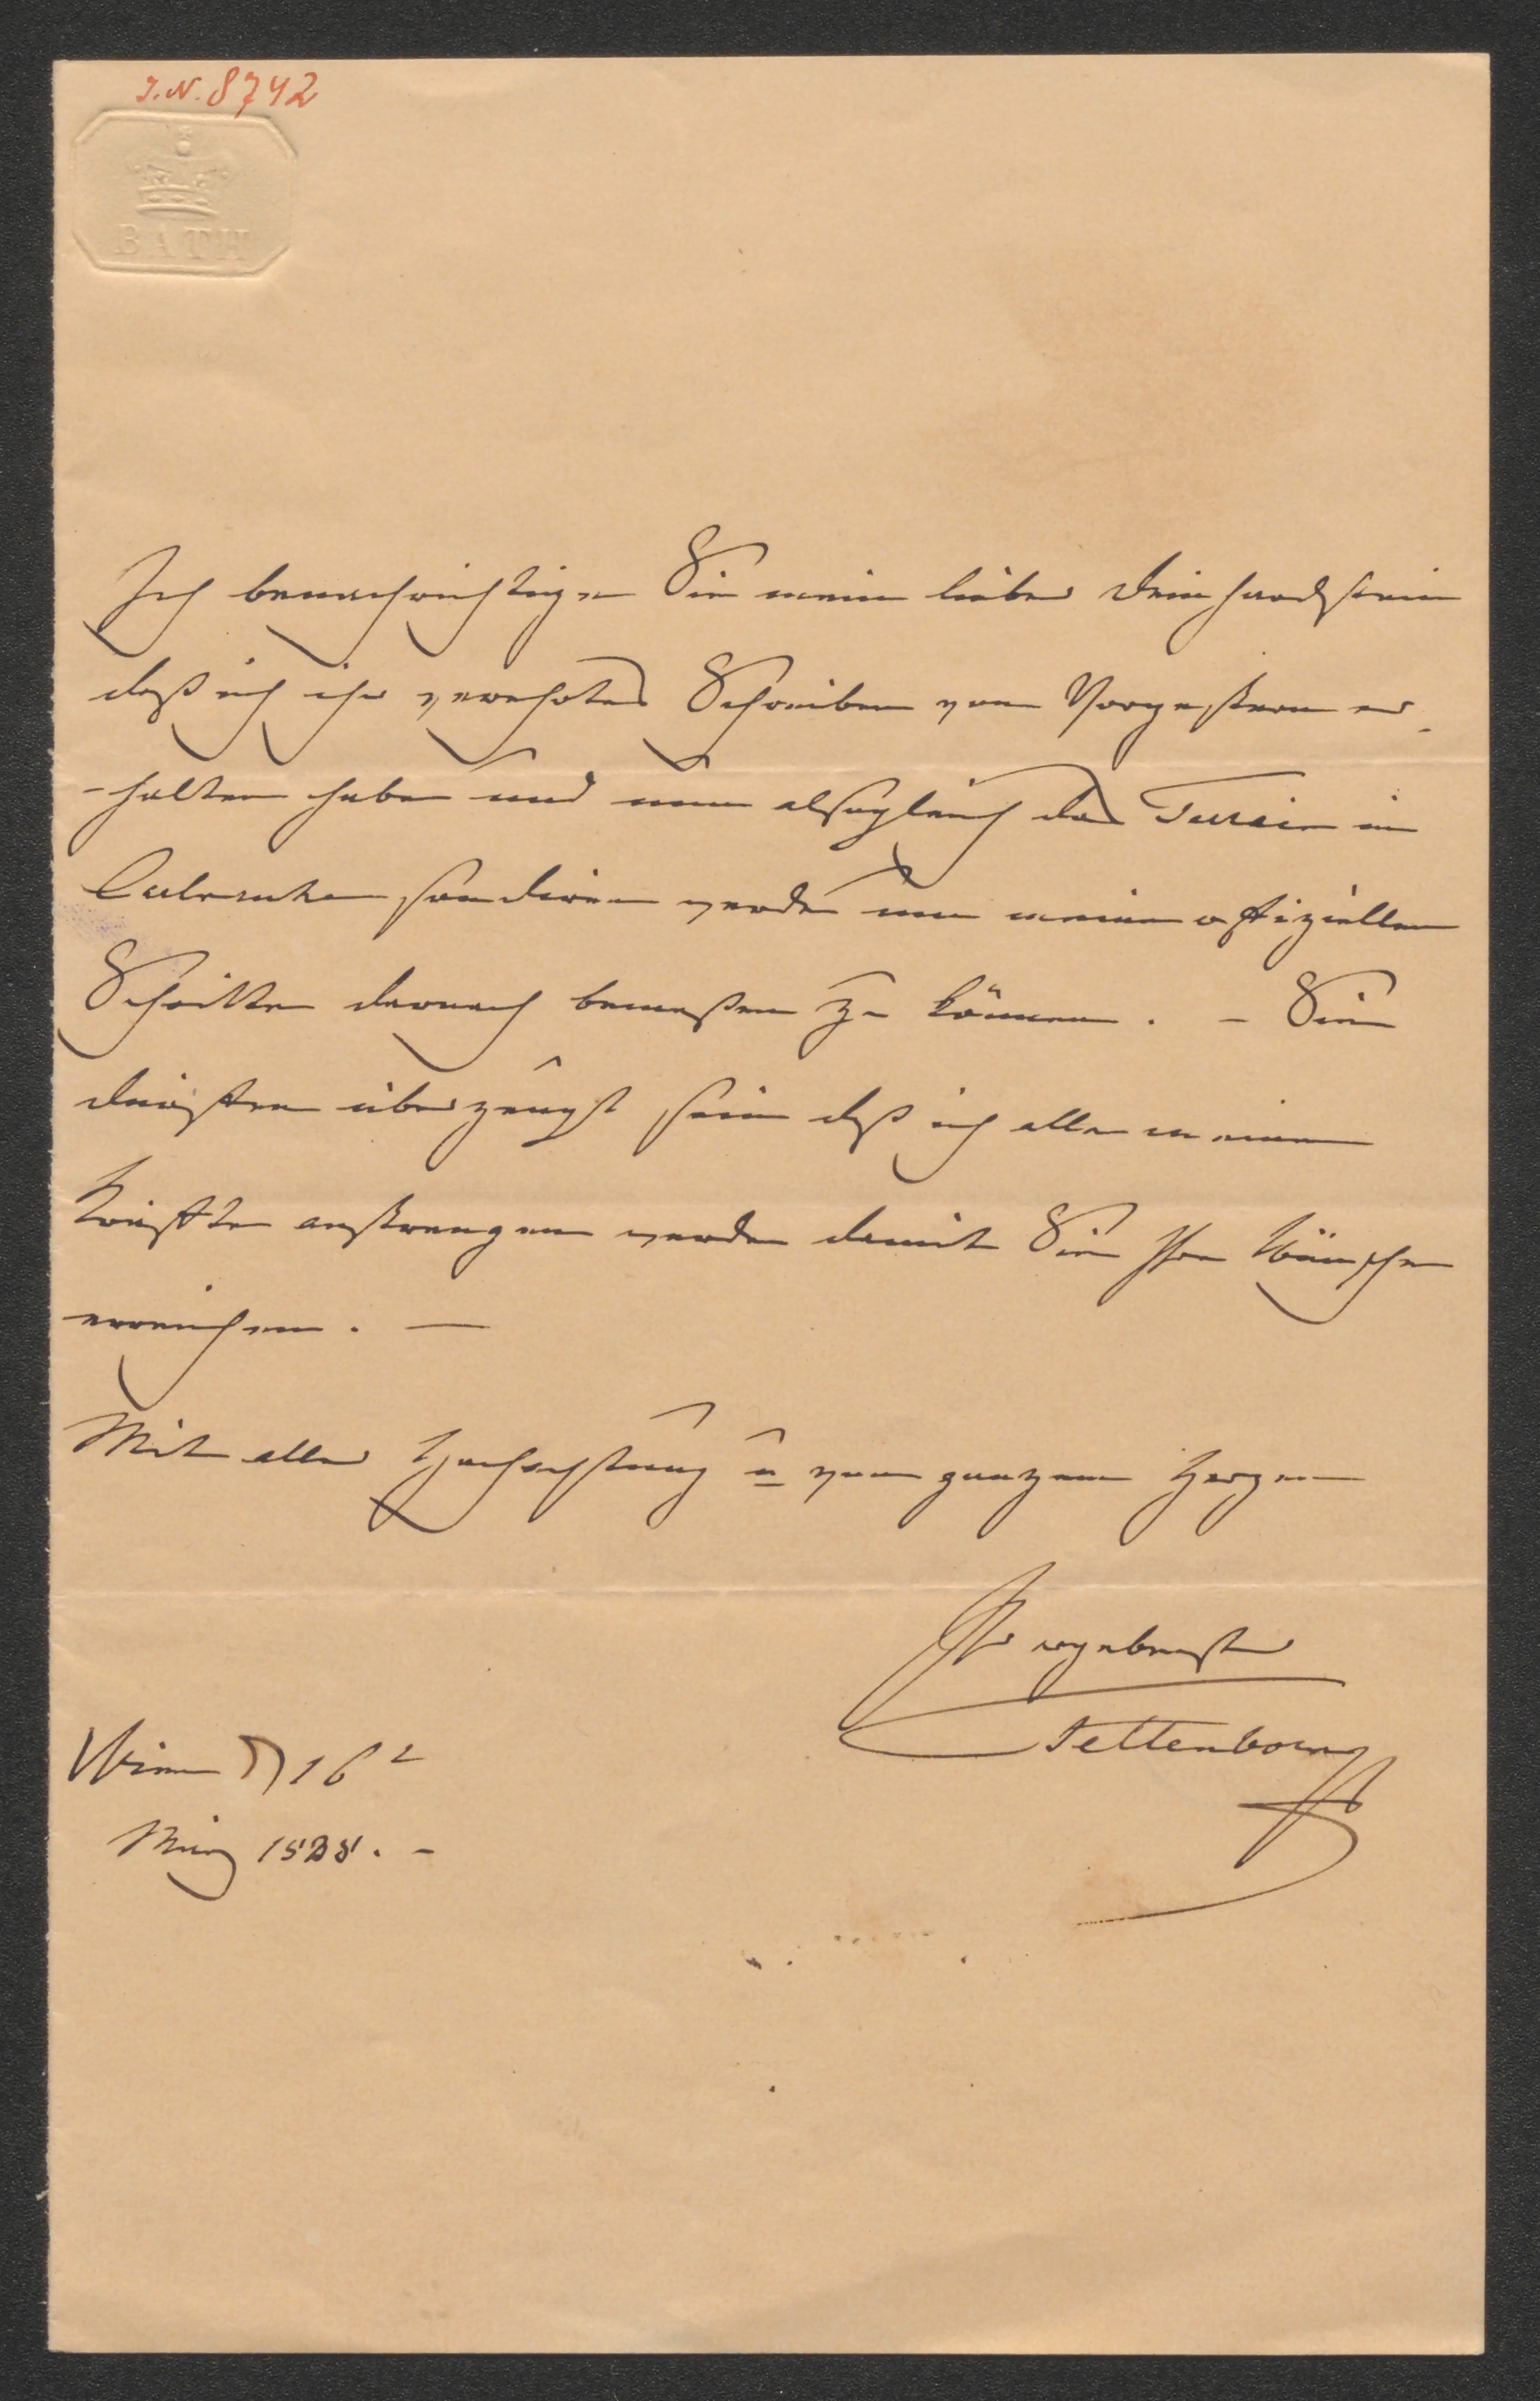 J.N. 8742
BATH
Ich benachrichtige Sie mein lieber Deinhardstein
daß ich ihr verehrtes Schreiben von Vorgestern er-
-halten habe und nun alsogleich das Terrain in
Carlsruhe sondiren werde um meine offiziellen
Schritte darnach bemeßen zu können. - Sie
dürften überzeugt sein daß ich alle meine
Kräfte anstrengen werde damit Sie Ihre Wünsche
erreichen. —
Mit aller Hochachtung u von ganzem Herzen
Ihr ergebenster
Tettenborn
Wien 16
März 1838. -